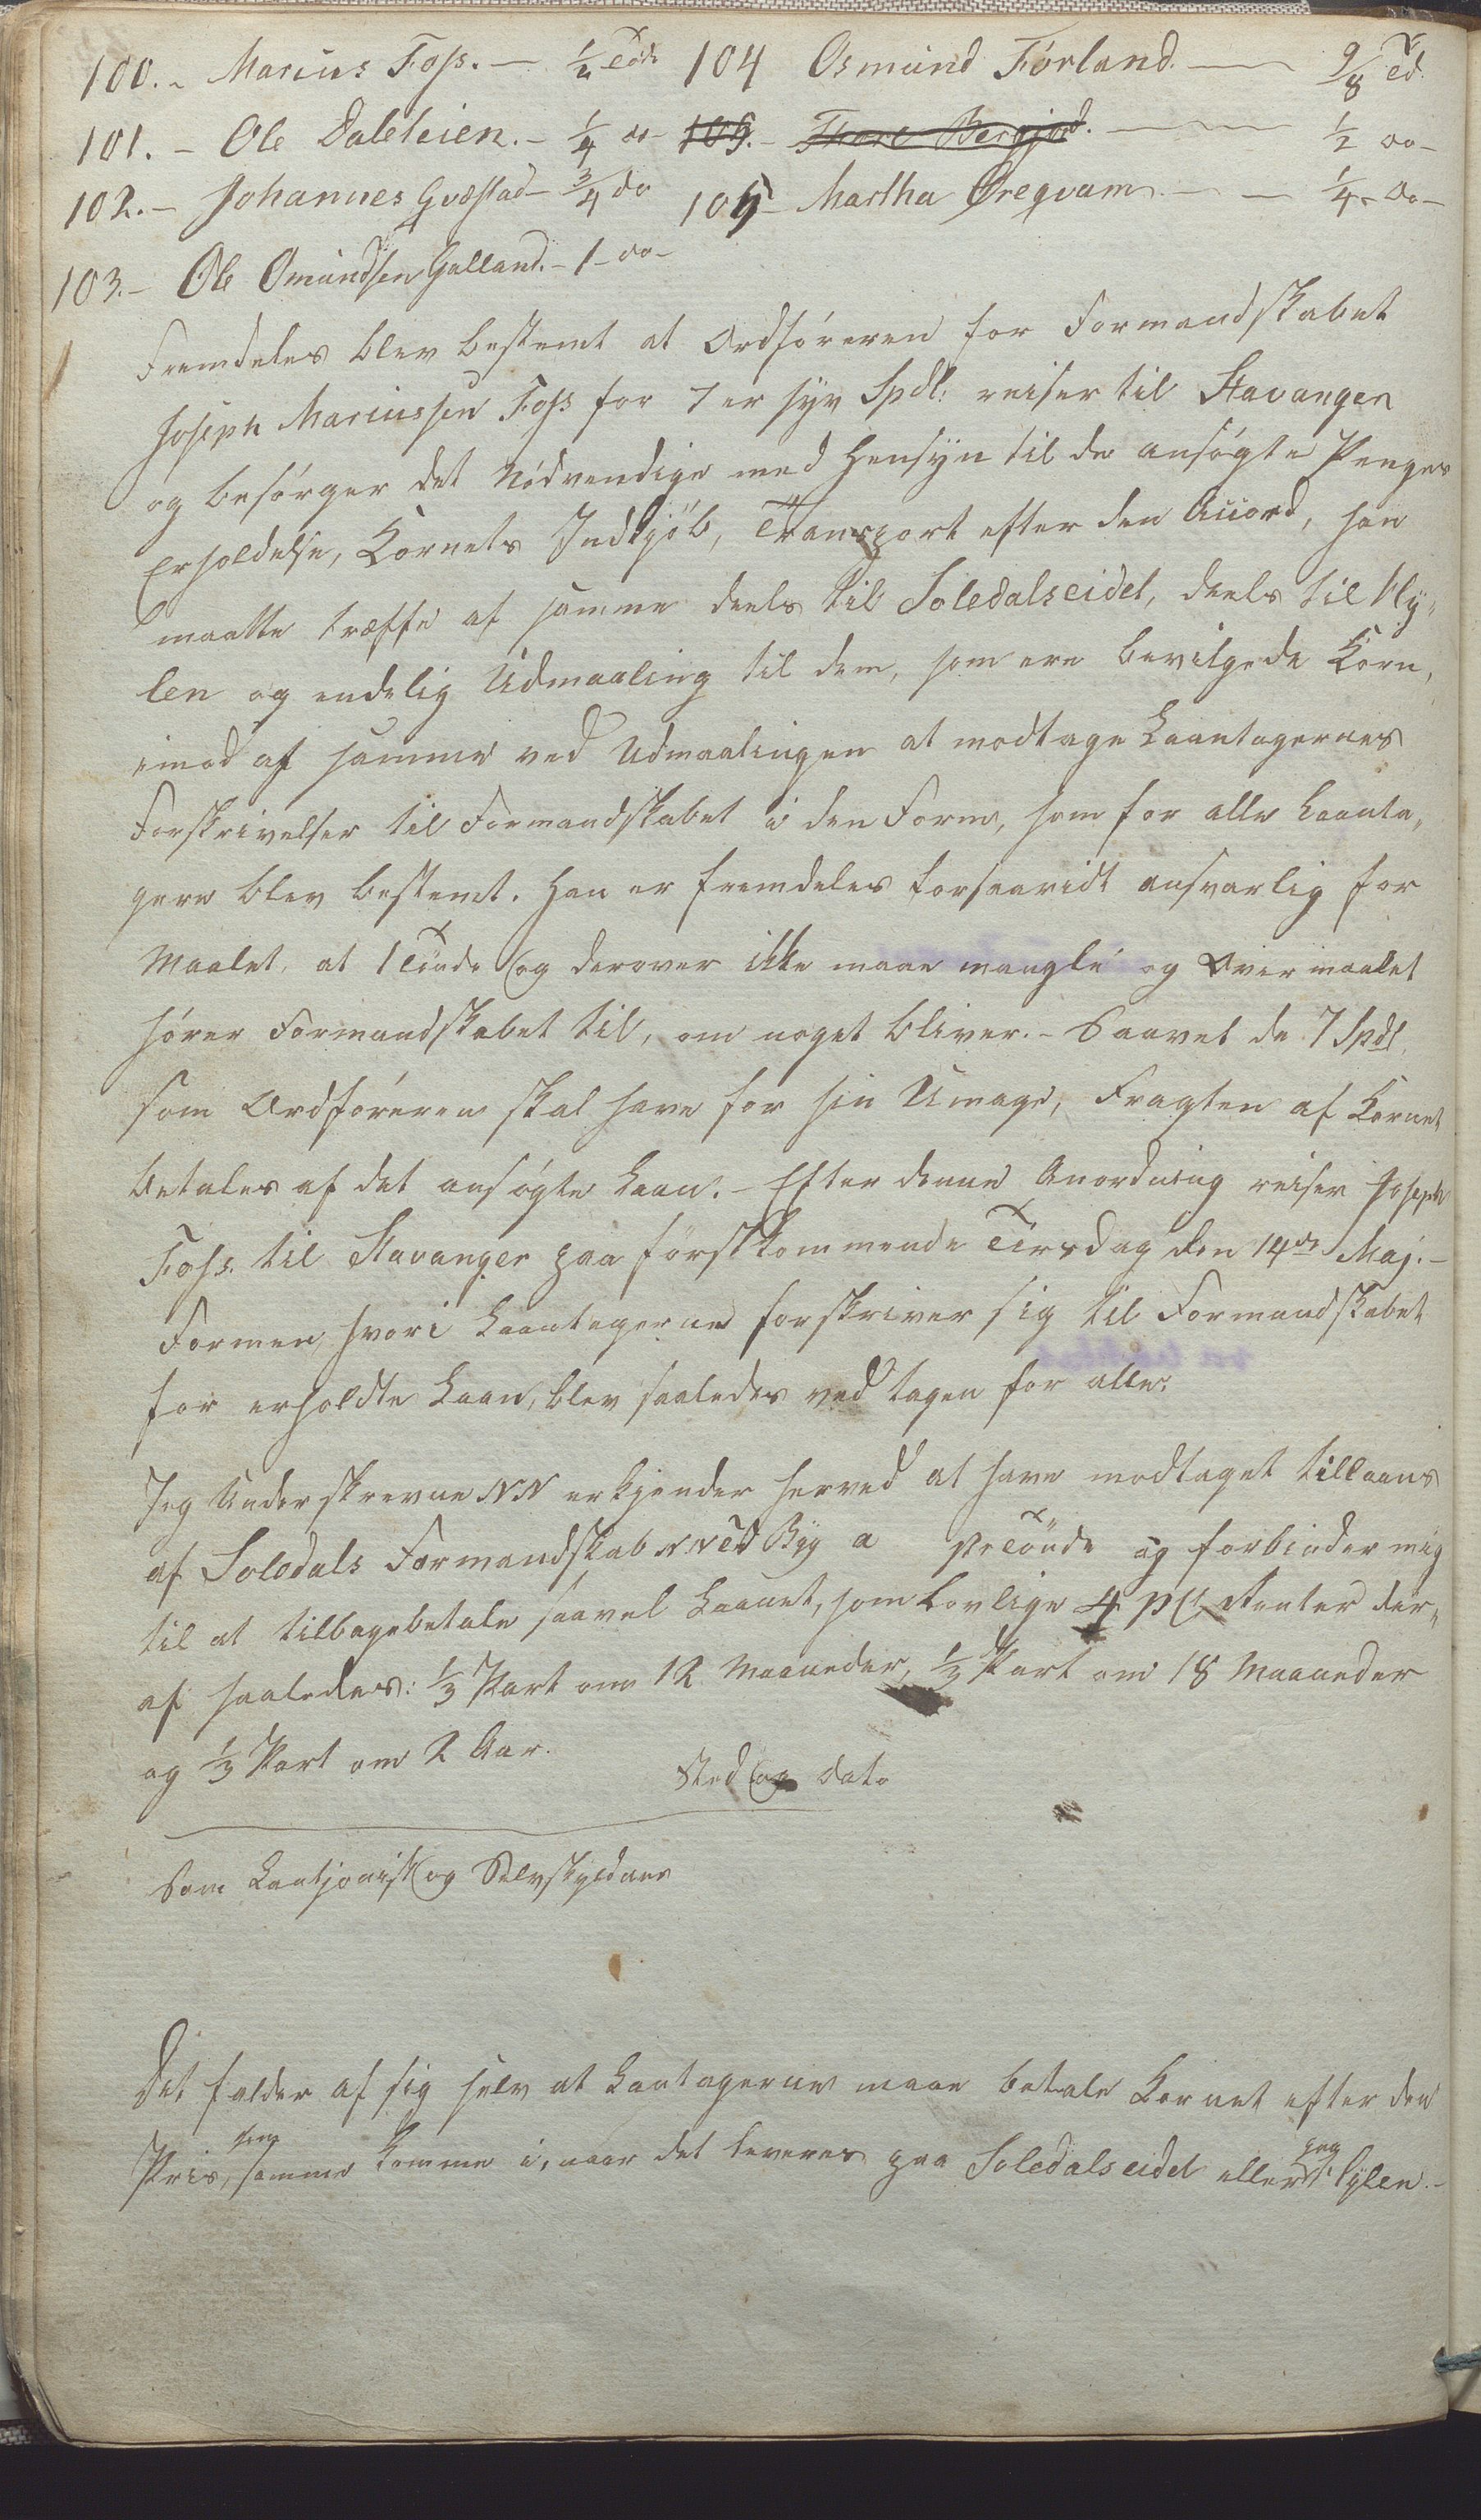 100. - Marius Foss. - 1/2 Tøde
101. - Ole Daleheien. - 1/4 do
102. - Johannes Gvæstad - 3/4 do
103. - Ole Omundsen Galland. - 1 - do -
104 Osmund Førland. - 9/8 Td.
105. - Thore Bergjord. - 1/2 do -
105 - Martha Øregvam. - 1/4 - do -
Fremdeles blev bestemt at Ordføreren for Formandskabet
Joseph Mariussen Foss for 7 er syv Spdl: reiser til Stavanger
og besørger det Nødvendige med Hensyn til de ansøgte Penges
Erholdelse, Kornets Indkjøb, Transport efter den Accord, han
maatte træffe af samme deels til Soledalseidet, deels til Hy„
len og endelig Udmaaling til dem, som ere bevilgede Korn,
imod af samme ved Udmaalingen at modtage Laantagernes
Forskrivelser til Formandskabet i den Form, som for alle Laanta„
gere blev bestemt. Han er fremdeles forsaavidt ansvarlig for
Maalet, at 1 Tønde og derover ikke maae mangle og Overmaalet
hører Formandskabet til, om noget bliver. - Saavel de 7 Spdl.
som Ordføreren skal have for sin Umage, Fragten af Kornet
betales af det ansøgte Laan. - Efter denne Anordning reiser Joseph
Foss. til Stavanger paa førstkommende Tirsdag den 14de Maj. -
Formen, hvori Laantagerne forskriver sig til Formandskabet
for erholdte Laan, blev saaledes vedtagen for alle:
Jeg Underskrevne NN erkjender herved at have modtaget tillaans
af Soledals Formandskab N.N Td Byg a pr Tønde og forbinder mig
til at tilbagebetale saavel Laanet, som lovlige 4 pCt Renter der„
af saaledes: 1/3 Part om 12 Maaneder, 1/3 Part om 18 Maaneder
og 1/3 Part om 2 Aar.
Sted og Dato
Som Kautjonist og Selvskyldner
Det falder af sig selv at Laantagerne maae betale Kornet efter den
Pris, som samme komme i, naar det leveres paa Soledalseidet eller paa Hylen. -